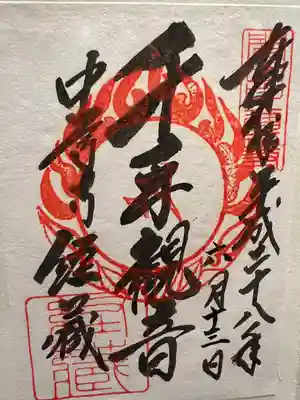 奉拝 平成二十八年
六月十三日
千手観音
中尊寺 経蔵